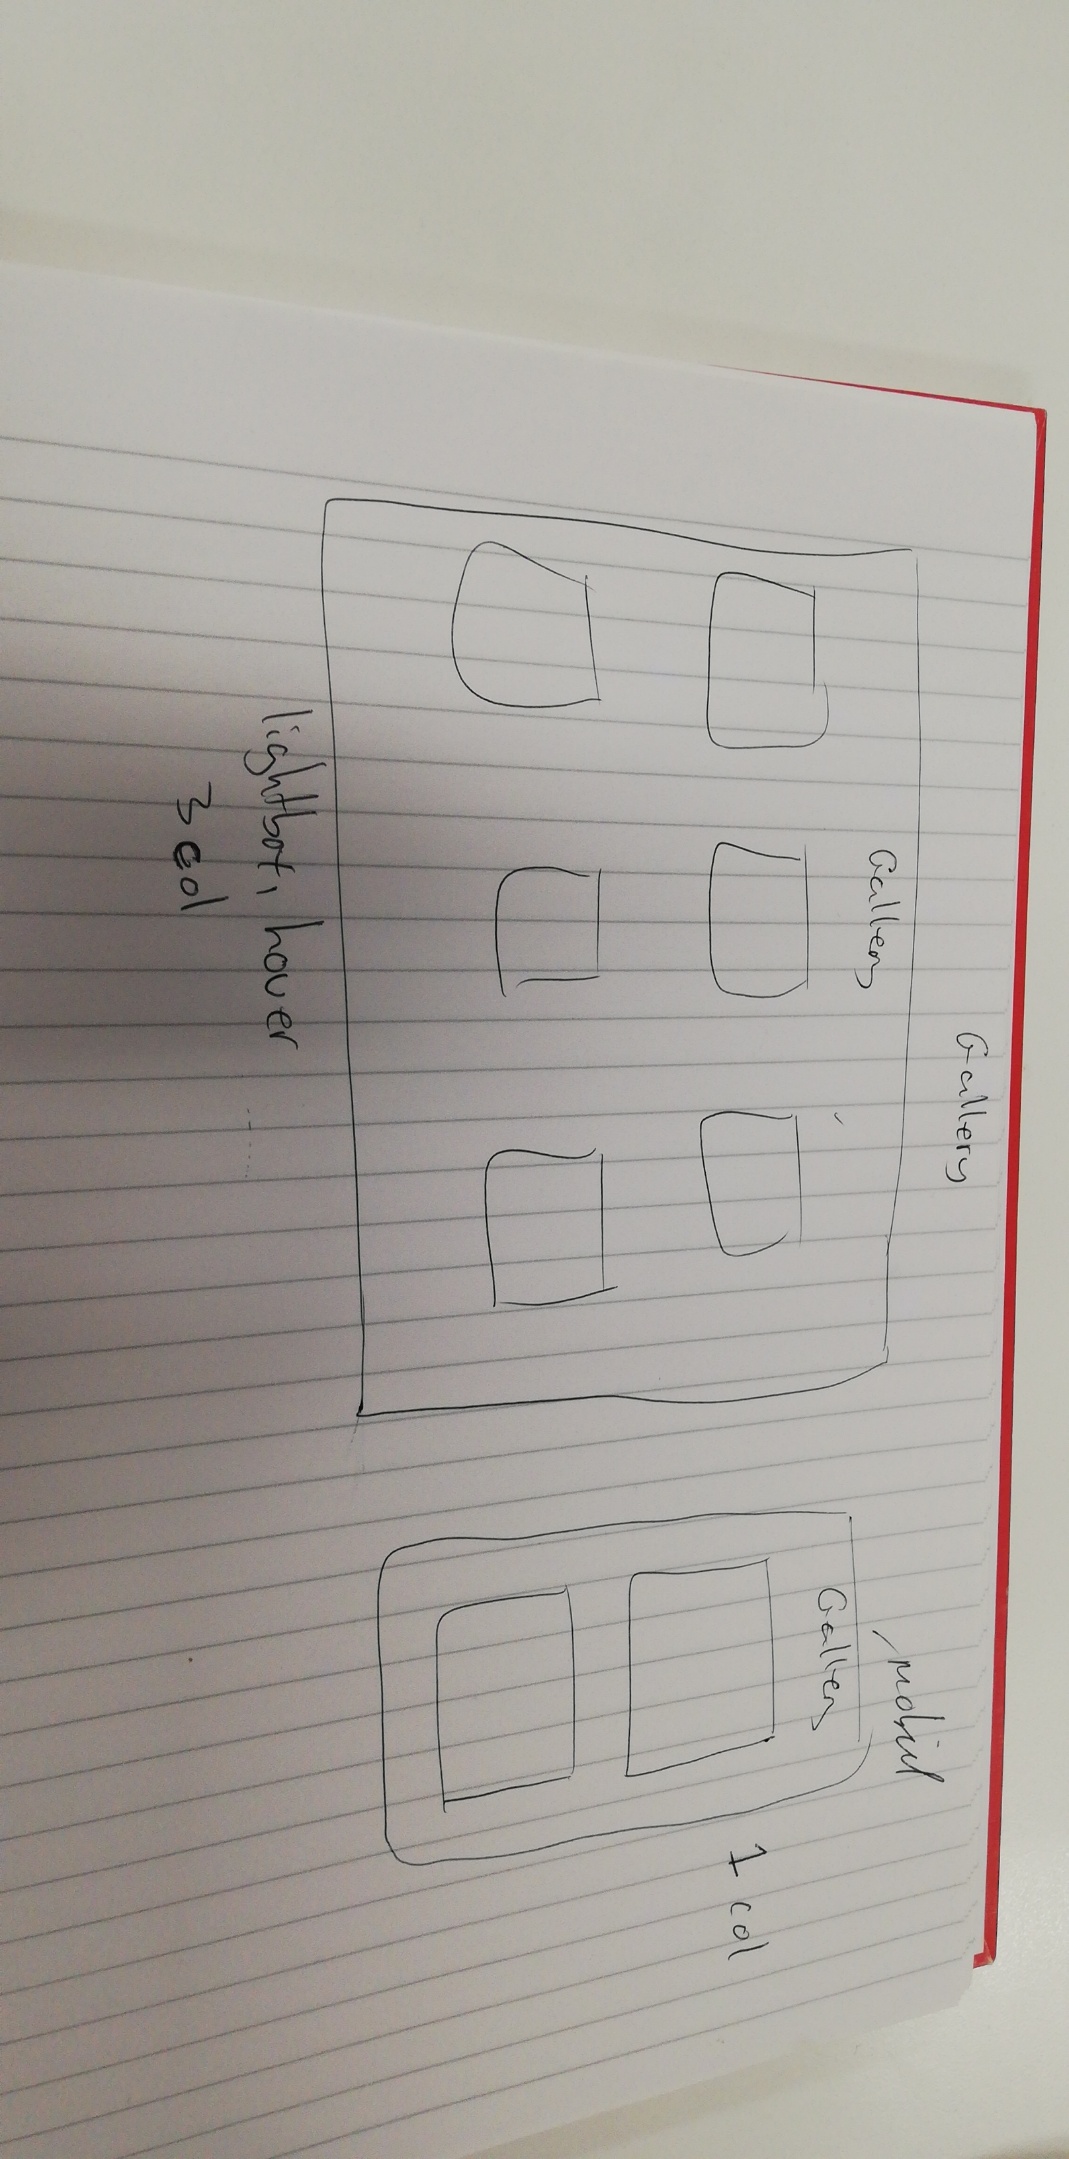 Gallery
Gallery
lightbox, hover
3 col
mobil
Gallery
1 col